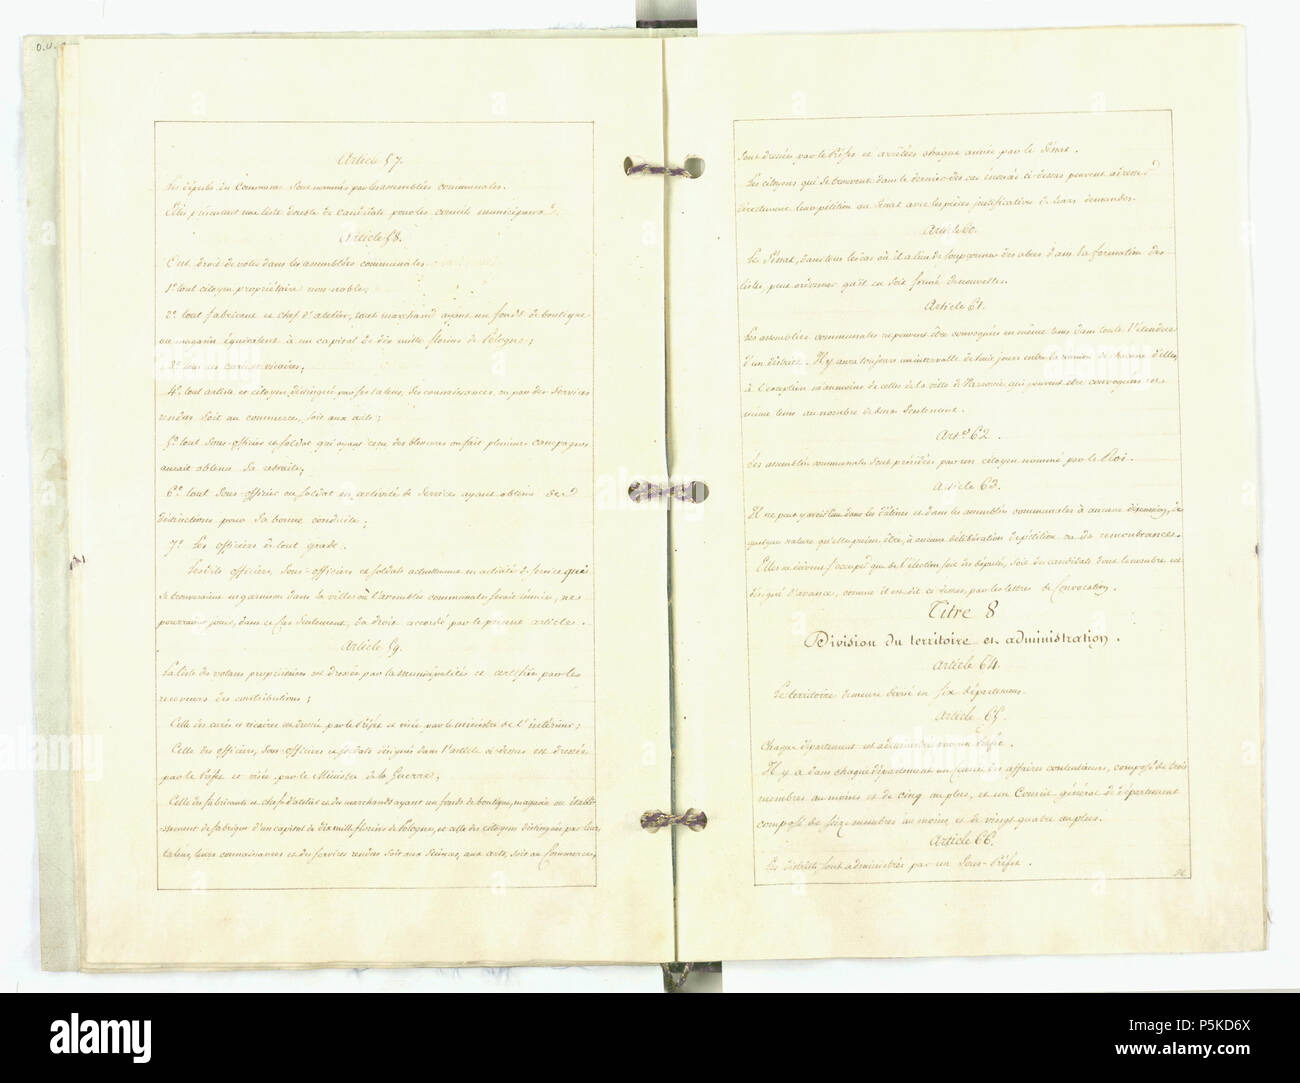 Article 57.
Les députés des Communes sont nommés par les assemblées communales.
Elles présentent une liste double de candidats pour les conseils municipaux.
Article 58.
Ont droit de voter dans les assemblées communales
1º tout citoyen propriétaire non-noble;
2º tout fabricant et chef d'atelier, tout marchand ayant un fonds de boutique
ou magasin équivalent à un capital de dix mille florins de Pologne;
3º tous les curés et vicaires;
4º tout artiste et citoyen distingué par ses talens, ses connaissances, ou par des services
rendus soit au commerce, soit aux arts;
5º tout sous-officier et soldat qui ayant reçu des blessures ou fait plusieurs campagnes
aurait obtenu sa retraite;
6º tout sous-officier ou soldat en activité de service ayant obtenu des
distinctions pour sa bonne conduite;
7º les officiers de tout grade.
Les dits officiers, sous-officiers et soldats actuellement en activité de service qui
se trouveraient en garnison dans la ville où l'assemblée communale serait réunie, ne
pourraient jouir, dans ce cas seulement, du droit accordé par le présent article.
Article 59.
La liste des votans propriétaires est dressée par la municipalité et certifiée par les
receveurs des contributions;
Celle des curés et vicaires est dressée par le Préfet et visée par le ministre de l'intérieur;
Celle des officiers, sous-officiers et soldats désignés dans l'article ci-dessus est dressée
par le Préfet et visée par le Ministre de la Guerre;
Celle des fabricants et chefs d'atelier et des marchands ayant un fonds de boutique, magasin ou établis-
-sement de fabrique d'un capital de dix mille florins de Pologne, et celle des citoyens distingués par leurs
talens, leurs connaissances et des services rendus soit aux sciences, aux arts, soit au Commerce,
sont dressées par le Préfet et arrêtées chaque année par le Sénat.
Les citoyens qui se trouvent dans le dernier des cas énoncés ci-dessus peuvent adresser
directement leur pétition au Sénat avec les pièces justificatives de leurs demandes.
Article 60.
Le Sénat, dans tous les cas où il a lieu de soupçonner des abus dans la formation des
listes, peut ordonner qu'il en soit formé de nouvelles.
Article 61.
Les assemblées communales ne peuvent être convoquées en même tems dans toute l'étendue
d'un district. Il y aura toujours un intervalle de huit jours entre la réunion de chacune d'elles,
à l'exception néanmoins de celles de la ville de Varsovie, qui peuvent être convoquées en
même tems au nombre de deux seulement.
Artº 62.
Les assemblées communales sont présidées par un citoyen nommé par le Roi.
Article 63.
Il ne peut y avoir lieu dans les diétines et dans les assemblées communales à aucune discussion, de
quelque nature qu'elle puisse être, à aucune délibération de pétition ou de remontrances.
Elles ne doivent s'occuper que de l'élection soit des députés, soit des candidats dont le nombre est
désigné d'avance, comme il est dit ci-dessus, par les lettres de Convocation.
Titre 8
Division du territoire et administration.
Article 64.
Le territoire demeure divisé en six départemens.
Article 65.
Chaque département est administré par un Préfet.
Il y a dans chaque département un Conseil des affaires contentieuses, composé de trois
membres au moins et de cinq au plus, et un Conseil général de département
composé de seize membres au moins et de vingt-quatre au plus.
Article 66.
Les districts sont administrés par un Sous-Préfet.
alamy
Image ID: P5KD6X
www.alamy.com